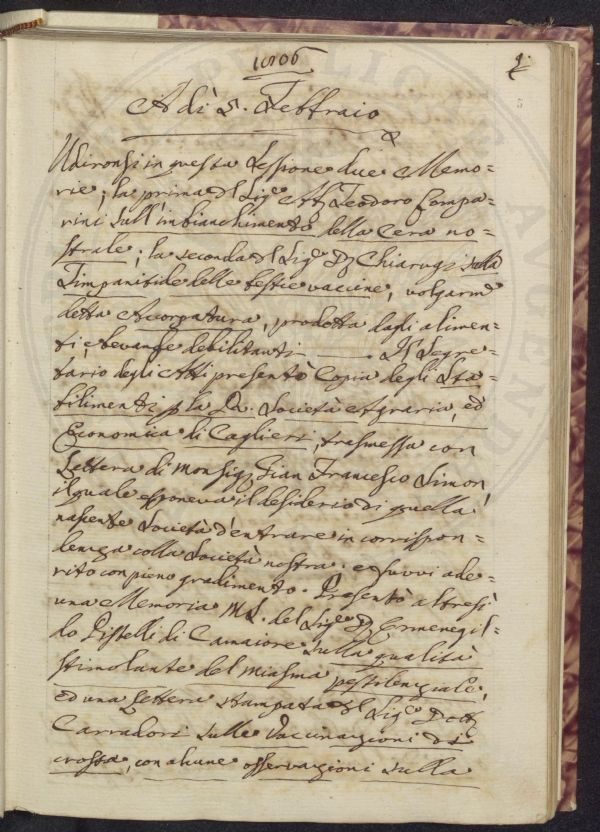 1806
A dì 5. Febbraio
Udironsi in questa Lessione due Memo=
rie; la prima del Sig.e Ab. Teodoro Compa=
rini sull'imbianchimento della Cera no=
strale; la seconda del Sig.e D. Chiarugi sulla
Timpanitide delle bestie vaccine, volgarm.e
detta Accorpatura, prodotta dagli alimen=
ti, e bevande debilitanti. Il Segre=
tario degli Atti presentò Copia degli Sta=
bilimenti p la Società Agraria, ed
Economica di Caglieri, trasmessa con
Lettera di Monsig. Gian Francesco Simon,
il quale esponeva il desiderio di quella
nascente Società d'entrare in corrispon=
denza colla Società nostra: e fuvvi ade=
rito con pieno gradimento. Presentò altresì
una Memoria MS. del Sig.e D. Ermenegil=
do Pistelli di Camaiore sulla qualità
stimolante del miasma pestilenziale,
ed una Lettera stampata del Sig.e Dott.
Carradori sulle Vaccinazioni di
crosta, con alcune osservazioni sulla